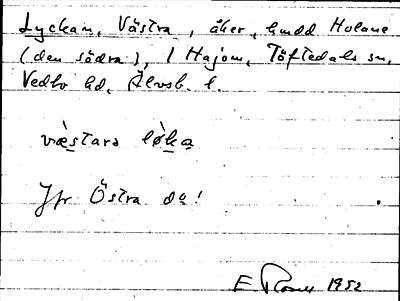 Lyckan, Västra, åker, hmdd Holane
(den södra), i Hajom, Töftedals sn,
Vedbo hd, Älvsb. l.
væ̀stara lø̀ka
Jfr Östra da!
E. 1952